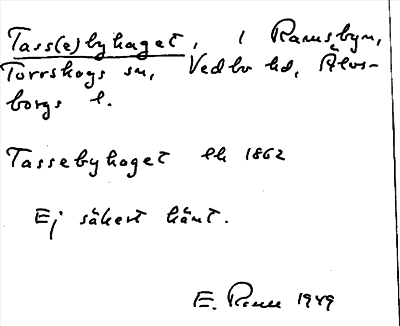 Tass(e)byhaget, i Ramsbyn,
Torrskogs sn, Vedbo hd, Älvs-
borgs l.
Tassebyhaget lh 1862
Ej säkert känt.
E. 1949